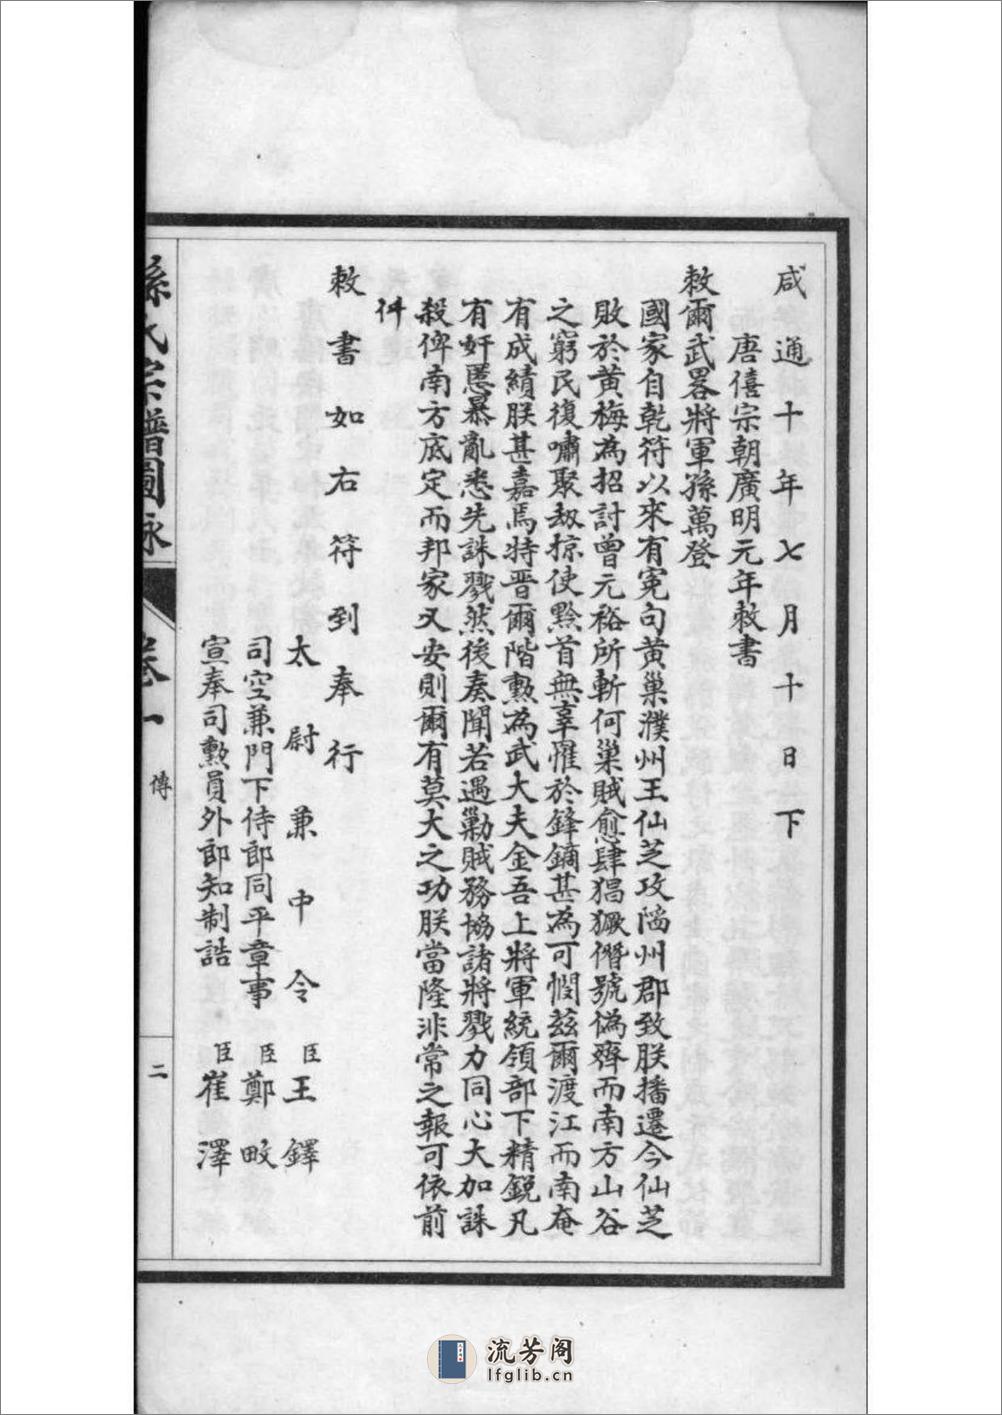 咸通十年七月十日下
唐僖宗朝廣明元年敕書
敕爾武畧將軍孫萬登
國家自乾符以來有寃句黃巢濮州王仙芝攻陷州郡致朕播遷今仙芝
敗於黃梅為招討曾元裕所斬何巢賊愈肆猖獗僭號偽齊而南方山谷
之窮民復嘯聚刼掠使黔首無辜罹於鋒鏑甚為可憫茲爾渡江而南奄
有成績朕甚嘉焉特晋爾階勲為武大夫金吾上將軍統領部下精銳凡
有奸慝暴亂悉先誅戮然後奏聞若遇勦賊務協諸將戮力同心大加誅
殺俾南方底定而邦家乂安則爾有莫大之功朕當隆非常之報可依前
件
敕書如右符到奉行
太尉兼中令臣王鐸
司空兼門下侍郎同平章事臣鄭畋
宣奉司勲員外郎知制誥臣崔澤
孫氏宗譜圖詠
卷一
傳
二
流芳阁
lfglib.cn